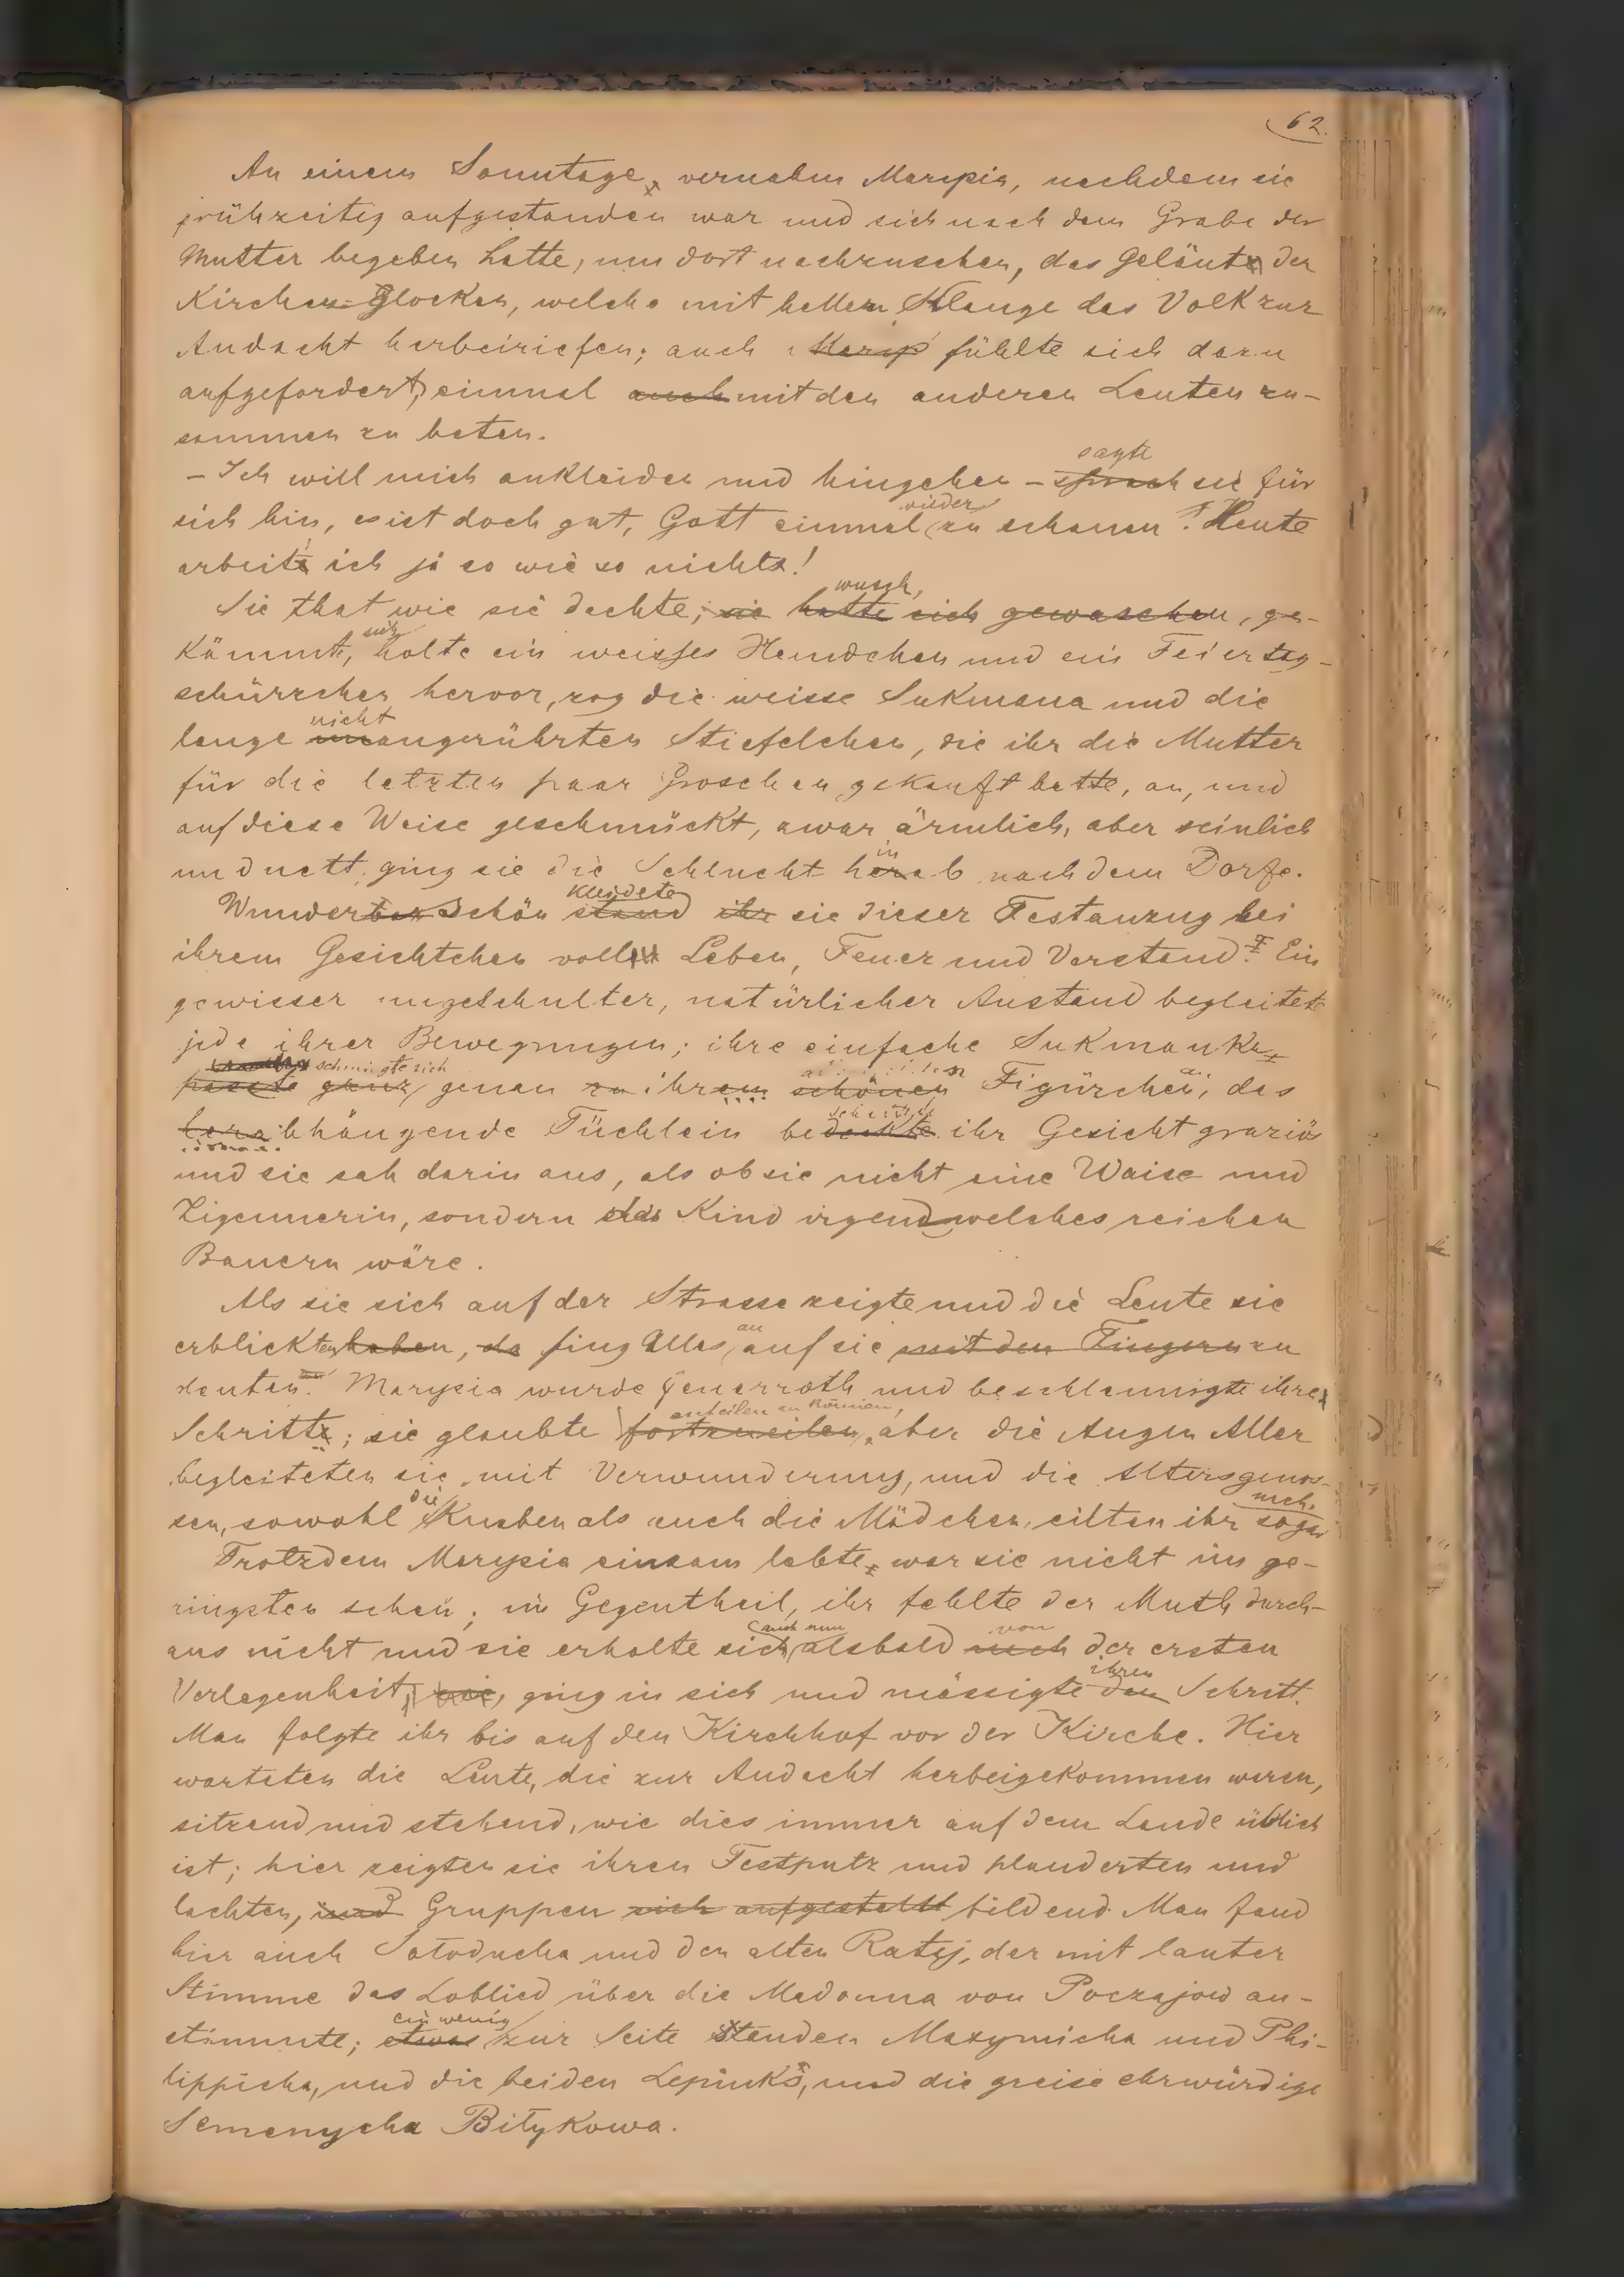 62.
An einem Sonntage, vernahm Marysia, nachdem sie
frühzeitig aufgestanden war und sich nach dem Grabe der
Mutter begeben hatte, um dort nachzusehen, das Geläute der
Kirchen-Glocken, welche mit hellem Klange das Volk zur
Andacht herbeiriefen; auch Marys fühlte sich dazu
aufgefordert, einmal auch mit den anderen Leuten zu-
sammen zu beten.
sagte
- Ich will mich ankleiden und hingehen - sprach sie für
wieder
sich hin, es ist doch gut, Gott einmal zu schauen! Heute
arbeite ich ja so wie so nichts!
wusch,
Sie that wie sie dachte; sie hatte sich gewaschen, ge-
sich
kämmt, holte ein weisses Hemdchen und ein Feiertag-
schürzchen hervor, zog die weisse Sukmana und die
nicht
lange unangerührten Stiefelchen, die ihr die Mutter
für die letzten paar Groschen gekauft hatte, an, und
auf diese Weise geschmückt, zwar ärmlich, aber reinlich
in
und nett, ging sie die Schlucht herab nach dem Dorfe.
kleidete
Wunderbar schön stand ihr sie dieser Festanzug bei
ihrem Gesichtchen voller Leben, Feuer und Verstand. Ein
gewisser ungeschulter, natürlicher Anstand begleitete
jede ihrer Bewegungen; ihre einfache Sukmanka
schmiegte sich
passte ganz genau zu ihrem schönen Figürchen, das
herabhängende Tüchlein bedeckte ihr Gesicht graziös
und sie sah darin aus, als ob sie nicht eine Waise und
Zigeunerin, sondern das Kind irgend welches reichen
Bauern wäre.
Als sie sich auf der Strasse zeigte und die Leute sie
an
erblickten haben, da fing Alles auf sie mit den Fingern zu
deuten. Marysia wurde feuerroth und beschleunigte ihre
enteilen zu können,
Schritte; sie glaubte fortzueilen, aber die Augen Aller
begleiteten sie mit Verwunderung, und die Altersgenos-
die nach.
sen, sowohl Knaben als auch die Mädchen, eilten ihr sogar
Trotzdem Marysia einsam lebte, war sie nicht im ge-
ringsten scheu; im Gegentheil, ihr fehlte der Muth durch-
auch nun von
aus nicht und sie erholte sich alsbald nach der ersten
ihren
Verlegenheit, ging in sich und mässigte den Schritt.
Man folgte ihr bis auf den Kirchhof vor der Kirche. Hier
warteten die Leute, die zur Andacht herbeigekommen waren,
sitzend und stehend, wie dies immer auf dem Lande üblich
ist; hier zeigten sie ihren Festputz und plauderten und
lachten, und Gruppen sich aufgestellt bildend. Man fand
hier auch Sołoducha und den alten Ratyj, der mit lauter
Stimme das Loblied über die Madonna von Poczajow an-
ein wenig
stimmte; etwas zur Seite standen Maxymicha und Phi-
lippicha, und die beiden Lepiuks, und die greise ehrwürdige
Semenycha Biłykowa.